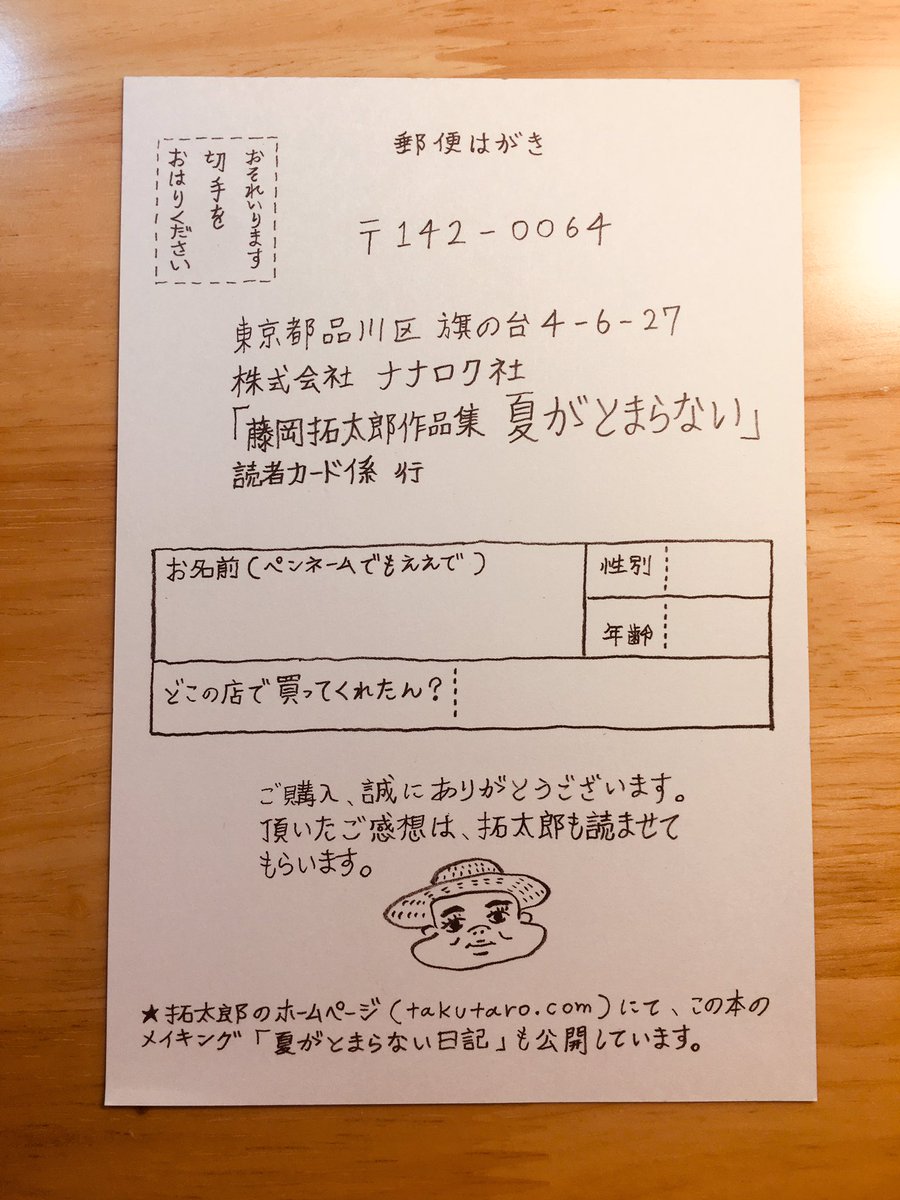 郵便はがき
おそれいります
切手を
おはりください
〒142-0064
東京都品川区 旗の台4-6-27
株式会社 ナナロク社
「藤岡拓太郎作品集 夏がとまらない」
読者カード係 行
お名前(ペンネームでもええで)
性別
年齢
どこの店で買ってくれたん?
ご購入、誠にありがとうございます。
頂いたご感想は、拓太郎も読ませて
もらいます。
★拓太郎のホームページ(takutaro.com)にて、この本の
メイキング「夏がとまらない日記」も公開しています。